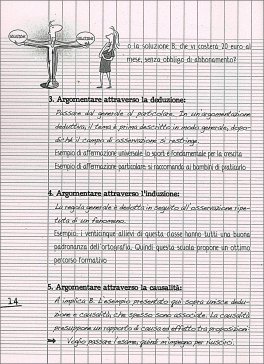 SOLUZIONE
SOLUZIONE
o la soluzione B, che vi costerà 20 euro al
mese, senza obbligo di abbonamento?
3. Argomentare attraverso la deduzione:
Passare dal generale al particolare. In un'argomentazione
deduttiva, il tema è prima descritto in modo generale, dopo-
diché il campo di osservazione si restringe.
Esempio di affermazione universale: lo sport è fondamentale per la crescita
Esempio di affermazione particolare: si raccomanda ai bambini di praticarlo
4. Argomentare attraverso l'induzione:
La regola generale è dedotta in seguito all'osservazione ripe-
tuta di un fenomeno.
Esempio: i venticinque allievi di questa classe hanno tutti una buona
padronanza dell'ortografia. Quindi questa scuola propone un ottimo
percorso formativo
5. Argomentare attraverso la causalità:
14
A implica B. L'esempio presentato qui sopra unisce dedu-
zione e causalità, che spesso sono associate. La causalità
presuppone un rapporto di causa ed effetto tra proposizioni:
Voglio passare l'esame, quindi m'impegno per riuscirci.